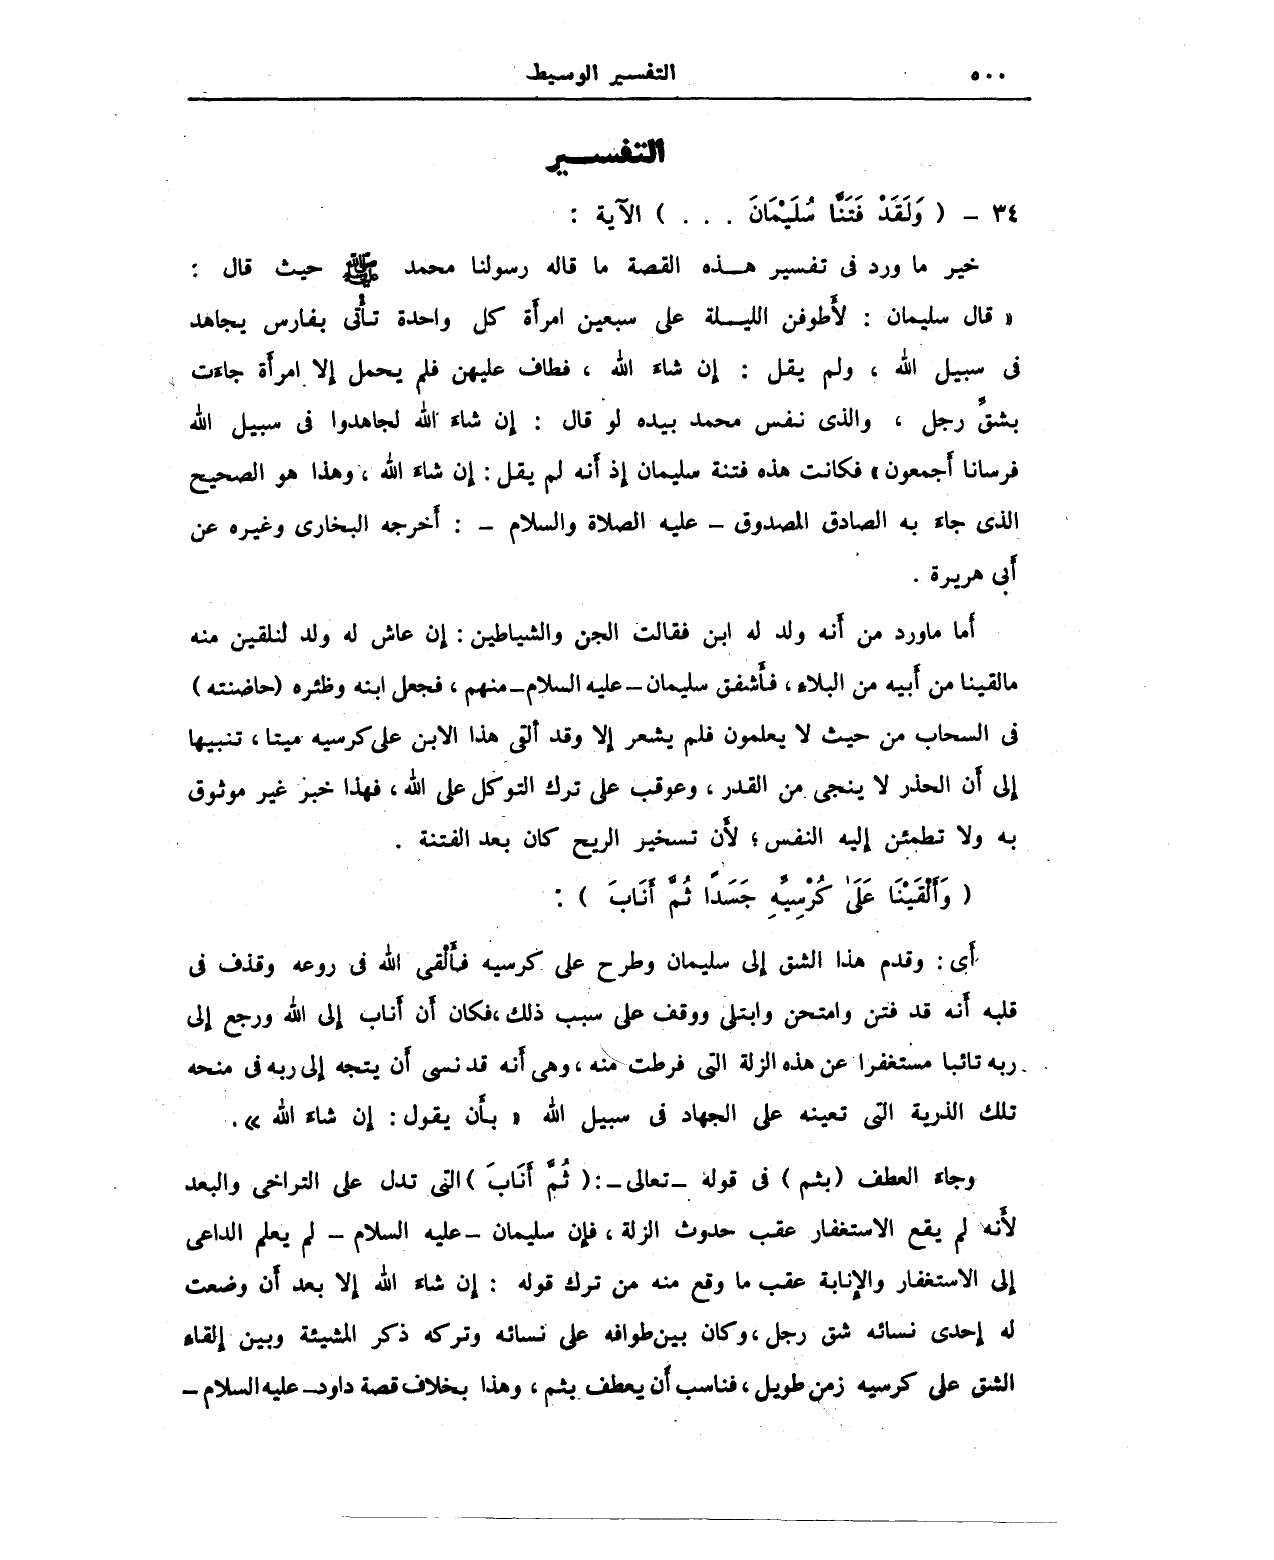 ٥٠٠ التفسير الوسيط
التفسـير
٣٤ - ( وَلَقَدْ فَتَنَّا سُلَيْمَانَ . . . ) الآية :
خير ما ورد فى تفسير هـذه القصة ما قاله رسولنا محمد ﷺ حيث قال :
« قال سليمان : لأَطوفن الليـلة على سبعين امرأَة كل واحدة تأْتى بفارس يجاهد
فى سبيل الله ، ولم يقل : إن شاءَ الله ، فطاف عليهن فلم يحمل إلا امرأَة جاءَت
بشقِّ رجل ، والذى نفس محمد بيده لو قال : إن شاءَ الله لجاهدوا فى سبيل الله
فرسانا أَجمعون» فكانت هذه فتنة سليمان إذ أَنه لم يقل : إن شاءَ الله ، وهذا هو الصحيح
الذى جاءَ به الصادق المصدوق - عليه الصلاة والسلام - : أَخرجه البخارى وغيره عن
أَبى هريرة .
أَما ماورد من أَنه ولد له ابن فقالت الجن والشياطين : إن عاش له ولد لنلقين منه
مالقينا من أَبيه من البلاء ، فأَشفق سليمان - عليه السلام - منهم ، فجعل ابنه وظئره (حاضنته)
فى السحاب من حيث لا يعلمون فلم يشعر إلا وقد أُلقى هذا الابن على كرسيه ميتا ، تنبيها
إلى أَن الحذر لا ينجى من القدر ، وعوقب على ترك التوكل على الله ، فهذا خبر غير موثوق
به ولا تطمئن إليه النفس ؛ لأَن تسخير الريح كان بعد الفتنة .
( وَأَلْقَيْنَا عَلَىٰ كُرْسِيِّهِ جَسَدًا ثُمَّ أَنَابَ ) :
أَى : وقدم هذا الشق إلى سليمان وطرح على كرسيه فأَلْقى الله فى روعه وقذف فى
قلبه أَنه قد فتن وامتحن وابتلى ووقف على سبب ذلك ، فكان أَن أَناب إلى الله ورجع إلى
ربه تائبا مستغفرا عن هذه الزلة التى فرطت منه ، وهى أَنه قد نسى أَن يتجه إلى ربه فى منحه
تلك الذرية التى تعينه على الجهاد فى سبيل الله « بأَن يقول : إن شاءَ الله » .
وجاءَ العطف (بثم) فى قوله - تعالى - : ( ثُمَّ أَنَابَ ) التى تدل على التراخى والبعد
لأَنه لم يقع الاستغفار عقب حدوث الزلة ، فإن سليمان - عليه السلام - لم يعلم الداعى
إلى الاستغفار والإنابة عقب ما وقع منه من ترك قوله : إن شاءَ الله إلا بعد أَن وضعت
له إحدى نسائه شق رجل ، وكان بين طوافه على نسائه وتركه ذكر المشيئة وبين إلقاء
الشق على كرسيه زمن طويل ، فناسب أَن يعطف بثم ، وهذا بخلاف قصة داود - عليه السلام -